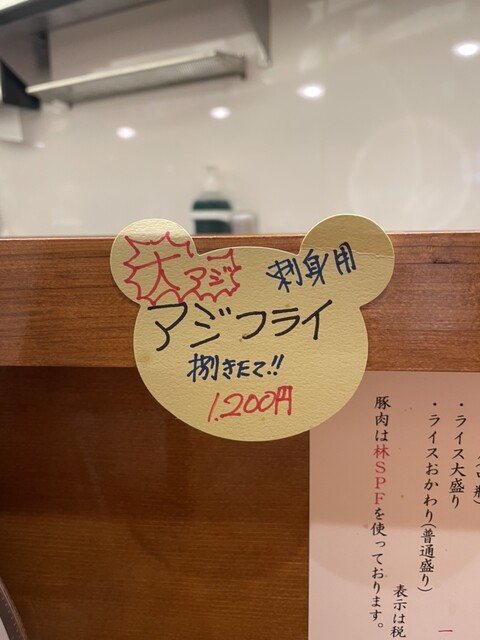 大アジ
刺身用
アジフライ
捌きたて!!
1.200円
・ライス大盛り
・ライスおかわり(普通盛り)
豚肉は林SPFを使っております。
表示は税